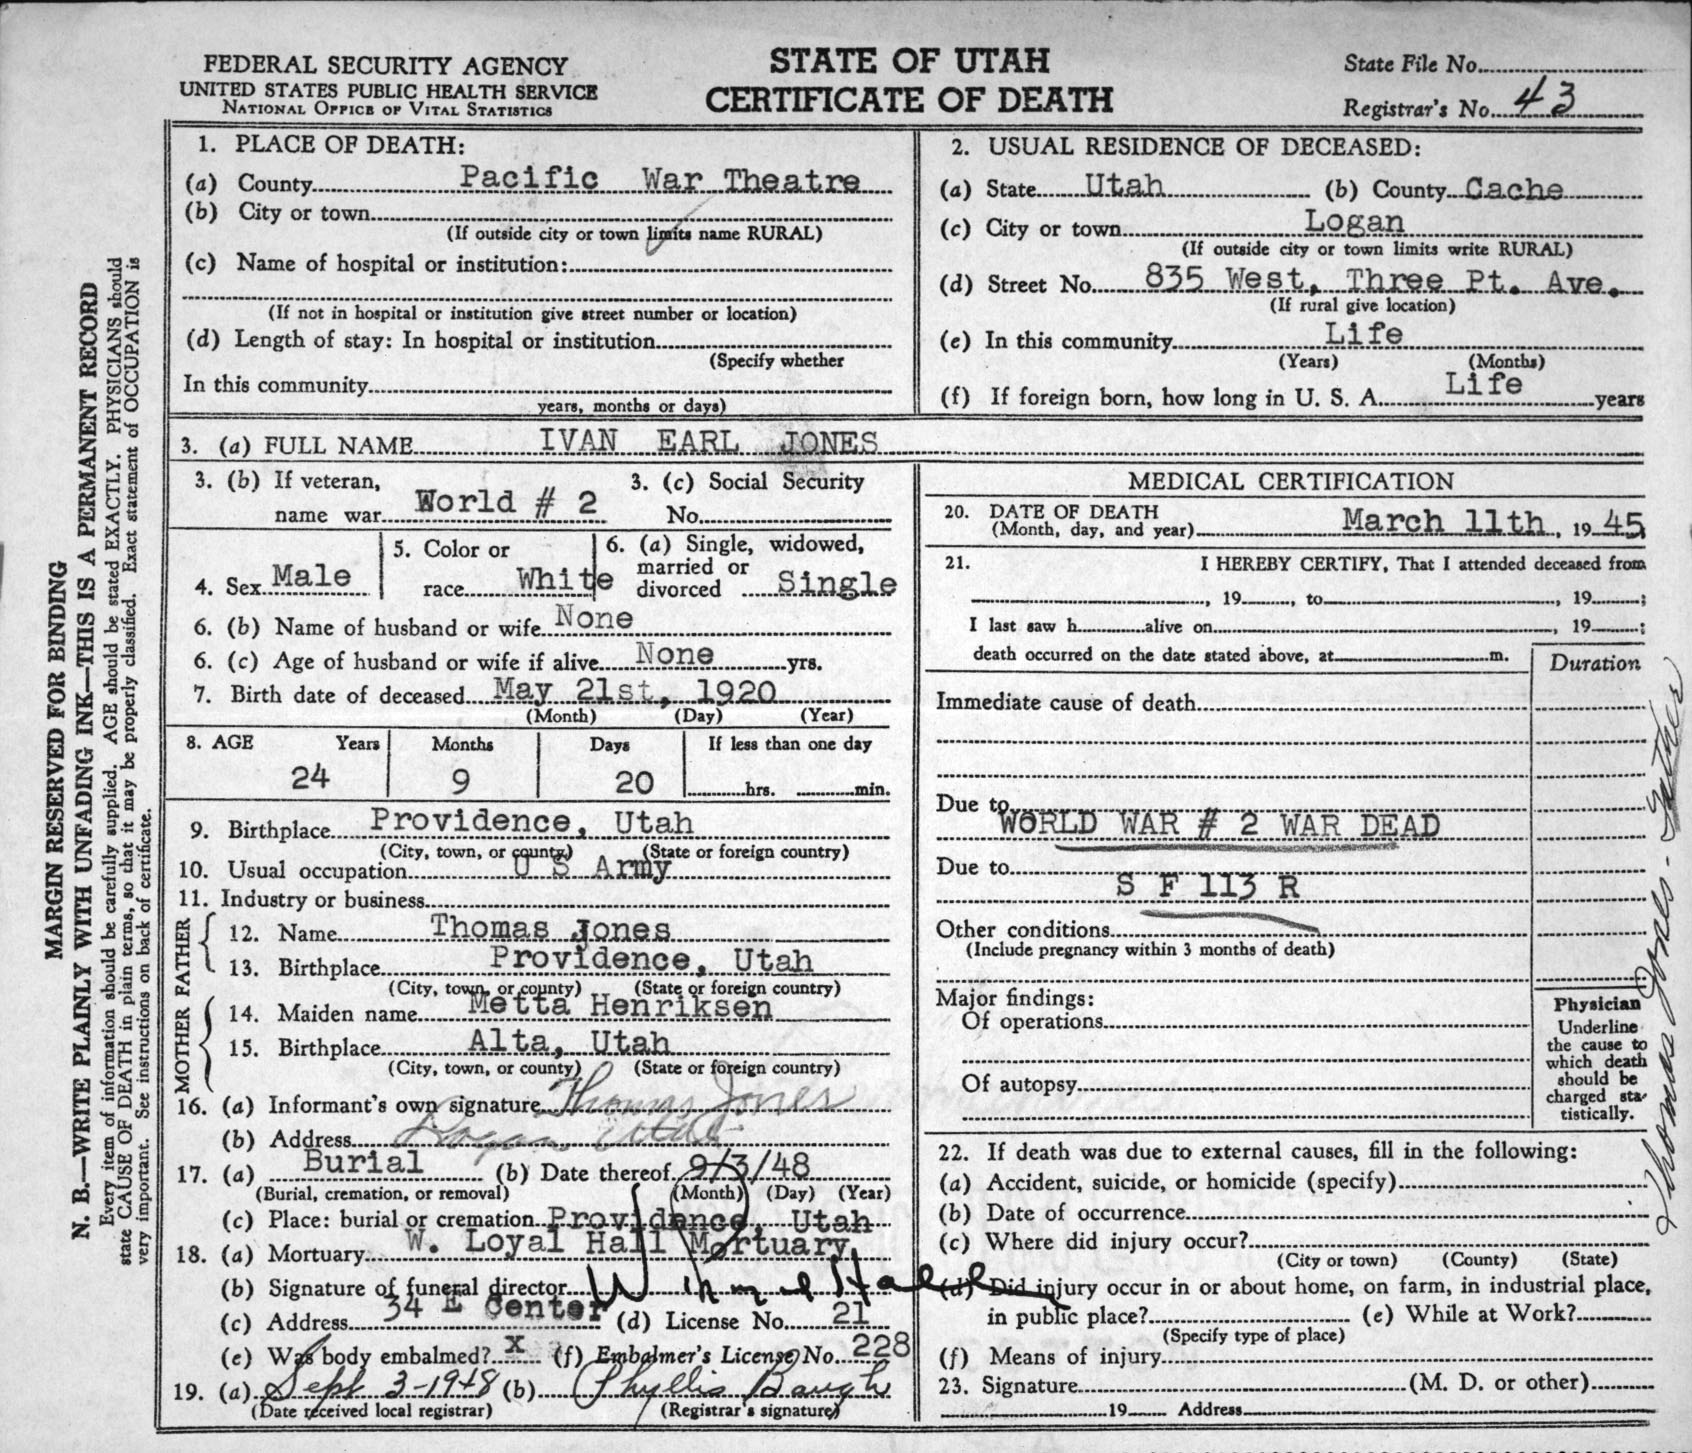 FEDERAL SECURITY AGENCY
UNITED STATES PUBLIC HEALTH SERVICE
NATIONAL OFFICE OF VITAL STATISTICS
STATE OF UTAH
CERTIFICATE OF DEATH
State File No.
Registrar's No. 43
MARGIN RESERVED FOR BINDING
N. B.—WRITE PLAINLY WITH UNFADING INK—THIS IS A PERMANENT RECORD
Every item of information should be carefully supplied. AGE should be stated EXACTLY. PHYSICIANS should
state CAUSE OF DEATH in plain terms, so that it may be properly classified. Exact statement of OCCUPATION is
very important. See instructions on back of certificate.
1. PLACE OF DEATH:
(a) County Pacific War Theatre
(b) City or town
(If outside city or town limits name RURAL)
(c) Name of hospital or institution:
(If not in hospital or institution give street number or location)
(d) Length of stay: In hospital or institution
(Specify whether
In this community
years, months or days)
2. USUAL RESIDENCE OF DECEASED:
(a) State Utah (b) County Cache
(c) City or town Logan
(If outside city or town limits write RURAL)
(d) Street No. 835 West, Three Pt. Ave.
(If rural give location)
(e) In this community Life
(Years) (Months)
(f) If foreign born, how long in U. S. A. Life years
3. (a) FULL NAME IVAN EARL JONES
3. (b) If veteran, 3. (c) Social Security
name war World # 2 No.
4. Sex Male
5. Color or
race White
6. (a) Single, widowed,
married or
divorced Single
6. (b) Name of husband or wife None
6. (c) Age of husband or wife if alive None yrs.
7. Birth date of deceased May 21st, 1920
(Month) (Day) (Year)
8. AGE Years Months Days If less than one day
24 9 20 hrs. min.
9. Birthplace Providence, Utah
(City, town, or county) (State or foreign country)
10. Usual occupation U S Army
11. Industry or business
FATHER
12. Name Thomas Jones
13. Birthplace Providence, Utah
(City, town, or county) (State or foreign country)
MOTHER
14. Maiden name Metta Henriksen
15. Birthplace Alta, Utah
(City, town, or county) (State or foreign country)
16. (a) Informant's own signature Thomas Jones
(b) Address Logan Utah
17. (a) Burial (b) Date thereof 9/3/48
(Burial, cremation, or removal) (Month) (Day) (Year)
(c) Place: burial or cremation Providence, Utah
18. (a) Mortuary W. Loyal Hall Mortuary
(b) Signature of funeral director
(c) Address 34 E Center (d) License No. 21
(e) Was body embalmed? X (f) Embalmer's License No. 228
19. (a) Sept 3-1948 (b) Phyllis Baugh
(Date received local registrar) (Registrar's signature)
MEDICAL CERTIFICATION
20. DATE OF DEATH
(Month, day, and year) March 11th, 1945
21. I HEREBY CERTIFY, That I attended deceased from
, 19 , to , 19 ;
I last saw h alive on , 19 ;
death occurred on the date stated above, at m.
Duration
Immediate cause of death
Due to
WORLD WAR # 2 WAR DEAD
Due to
S F 113 R
Other conditions
(Include pregnancy within 3 months of death)
Major findings:
Of operations
Of autopsy
Physician
Underline
the cause to
which death
should be
charged sta-
tistically.
22. If death was due to external causes, fill in the following:
(a) Accident, suicide, or homicide (specify)
(b) Date of occurrence
(c) Where did injury occur?
(City or town) (County) (State)
(d) Did injury occur in or about home, on farm, in industrial place,
in public place? (e) While at Work?
(Specify type of place)
(f) Means of injury
23. Signature (M. D. or other)
19 Address
Thomas Jones - Father